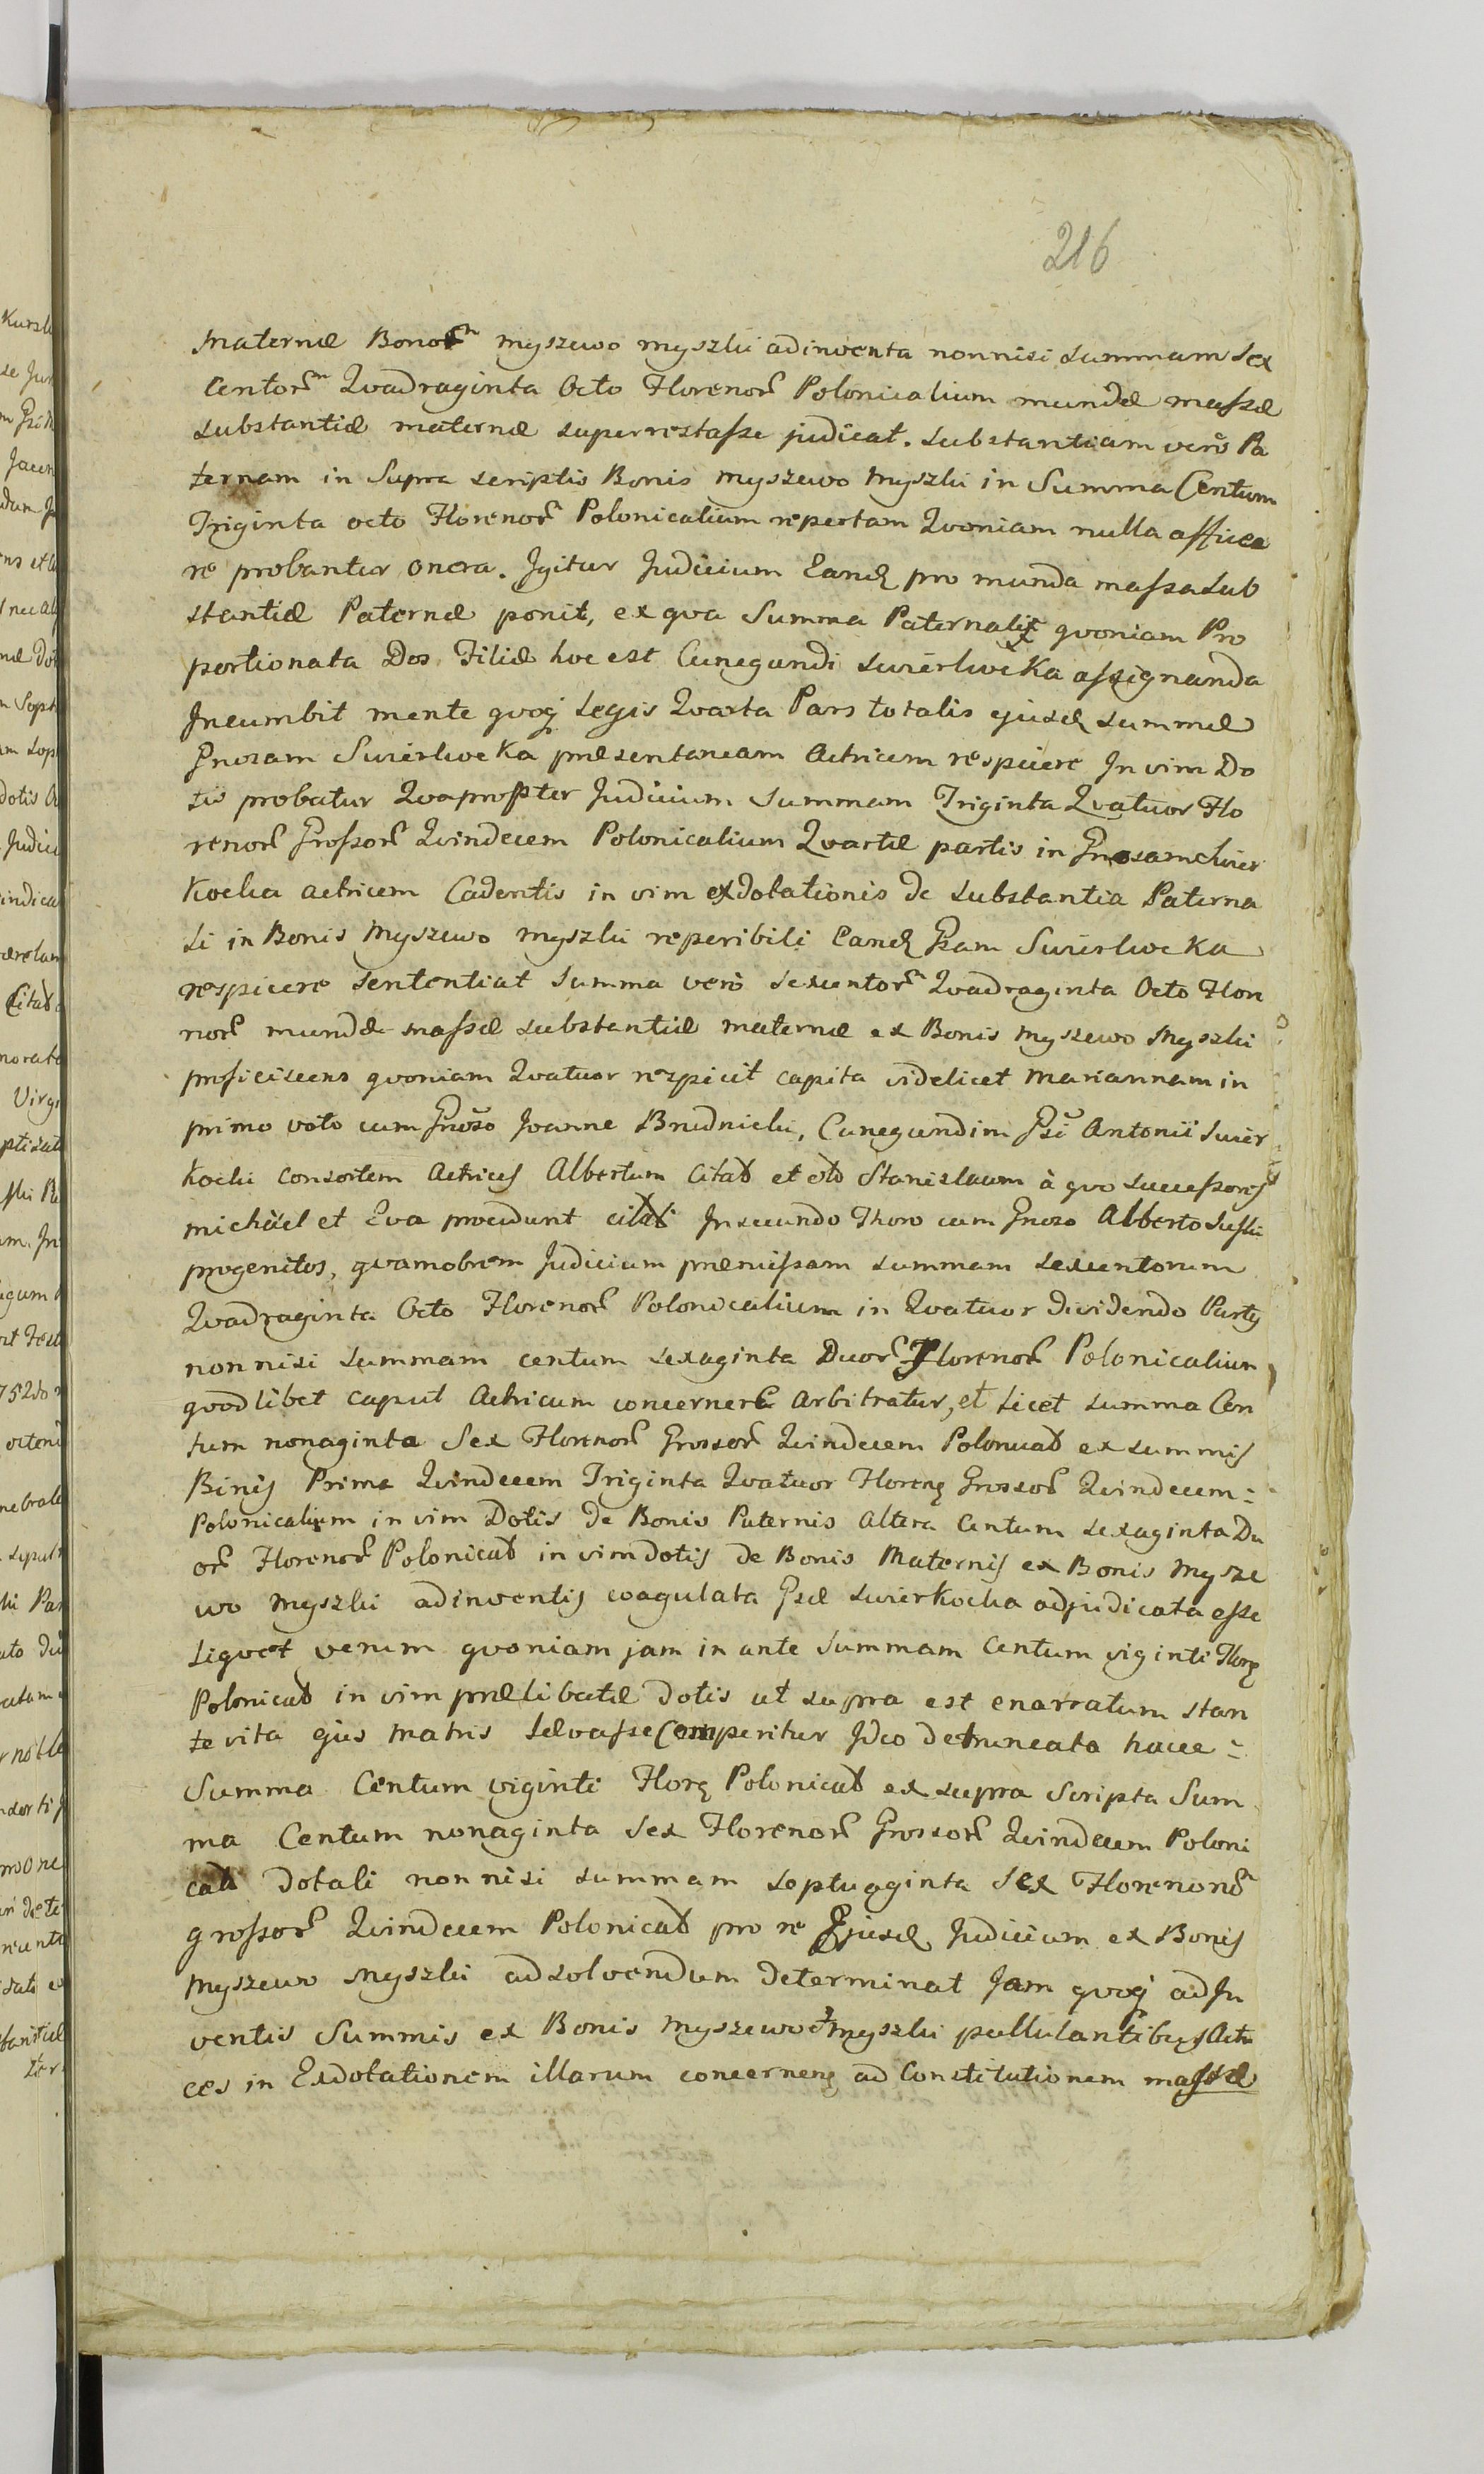 216
maternæ Bonorm myszewo myszki adinventa nonnisi summam sex
Centorm Qvadraginta Octo Florenor Polonicalium mundæ massæ
substantiæ maternæ superrestasse judicat. substantiam verò Pa
ternam in Supra scriptis Bonis myszewo myszki in Summa Centum
Triginta octo Florenor Polonicalium repertam Qvoniam nulla affice
re probantur onera. Igitur Judicium Eand pro munda massa sub
stantiæ Paternæ ponit, ex qva Summa Paternali qvoniam Pro
portionata Dos Filiæ hoc est Cunegundi swierkocka assignanda
Incumbit mente qvoq Legis Qvarta Pars totalis ejusd summæ
Gnosam Swierkocka præsentaneam Actricem respicere In vim Do
tis probatur Qvapropter Judicium Summam Triginta Qvatuor Flo
renor Grossor Qvindecem Polonicalium Qvartæ partis in Gnosam Swier
Kocka actricem Cadentis in vim exdotationis de substantia Paterna
li in Bonis Myszewo myszki reperibili Eand Gsam Swierkocka
respicere sententiat summa verò sexcentor Qvadraginta Octo Flore
nor mundæ massæ substantiæ maternæ ex Bonis myszewo Myszki
proficiscens qvoniam Qvatuor respicit capita videlicet Mariannam in
primo voto cum Gnoso Joanne Brudnicki, Cunegundim Gsi Antonii Swier
kocki consortem Actrices Albertum Citat et olo Stanislaum à qvo successores
michäel et Eva procedunt citati In secundo Thoro cum Gnoso Alberto
progenitos, qvamobrem Judicium præmissam summam sexcentorum
Qvadraginta Octo Florenor Polonicalium in Qvatuor dividendo Partes
non nisi summam centum sexaginta Duor Florenor Polonicalium
qvod libet caput Actricum concernere arbitratur, et licet summa Cen
tum nonaginta Sex Florenor Grossor Qvindecem Polonicat ex summis
Binis Prima Qvindecem Triginta Qvatuor Floren Grossor Qvindecem=
Polonicalium in vim Dotis de Bonis Paternis Altera Centum sexaginta Du
or Florenor Polonicat in vim dotis de Bonis Maternis ex Bonis Mysze
wo Myszki adinventis coagulata Gsæ Swierkocka adjudicata esse
Liqvet verum qvoniam jam in ante Summam Centum viginti Flor
Polonicat in vim prælibatæ Dotis ut supra est enarratum stan
te vita ejus matris selvasse Comperitur Ideo detruncata hacce=
Summa Centum viginti Flor Polonicat ex supra Scripta Sum
ma Centum nonaginta Sex Florenor Grossor Qvindecem Poloni
cat Dotali non nisi summam septuaginta Sex Florenor
grossor Qvindecem Polonicat pro re Ejusd Judicium ex Bonis
Myszewo Myszki adsolvendum determinat Jam qvoq ad In
ventis Summis ex Bonis Myszewo Myszki pullulantibus Actri
ces in Exdotationem illarum concernen ad Constitutionem massæ